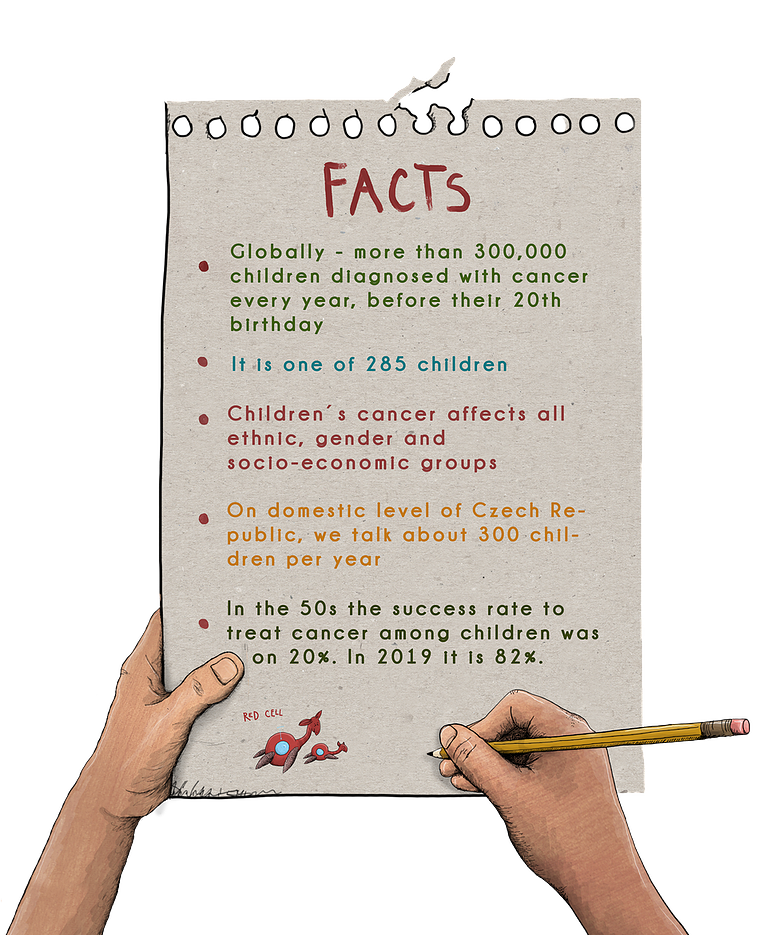 FACTS
Globally - more than 300,000
children diagnosed with cancer
every year, before their 20th
birthday
It is one of 285 children
Children´s cancer affects all
ethnic, gender and
socio-economic groups
On domestic level of Czech Re-
public, we talk about 300 chil-
dren per year
In the 50s the success rate to
treat cancer among children was
on 20%. In 2019 it is 82%.
RED CELL